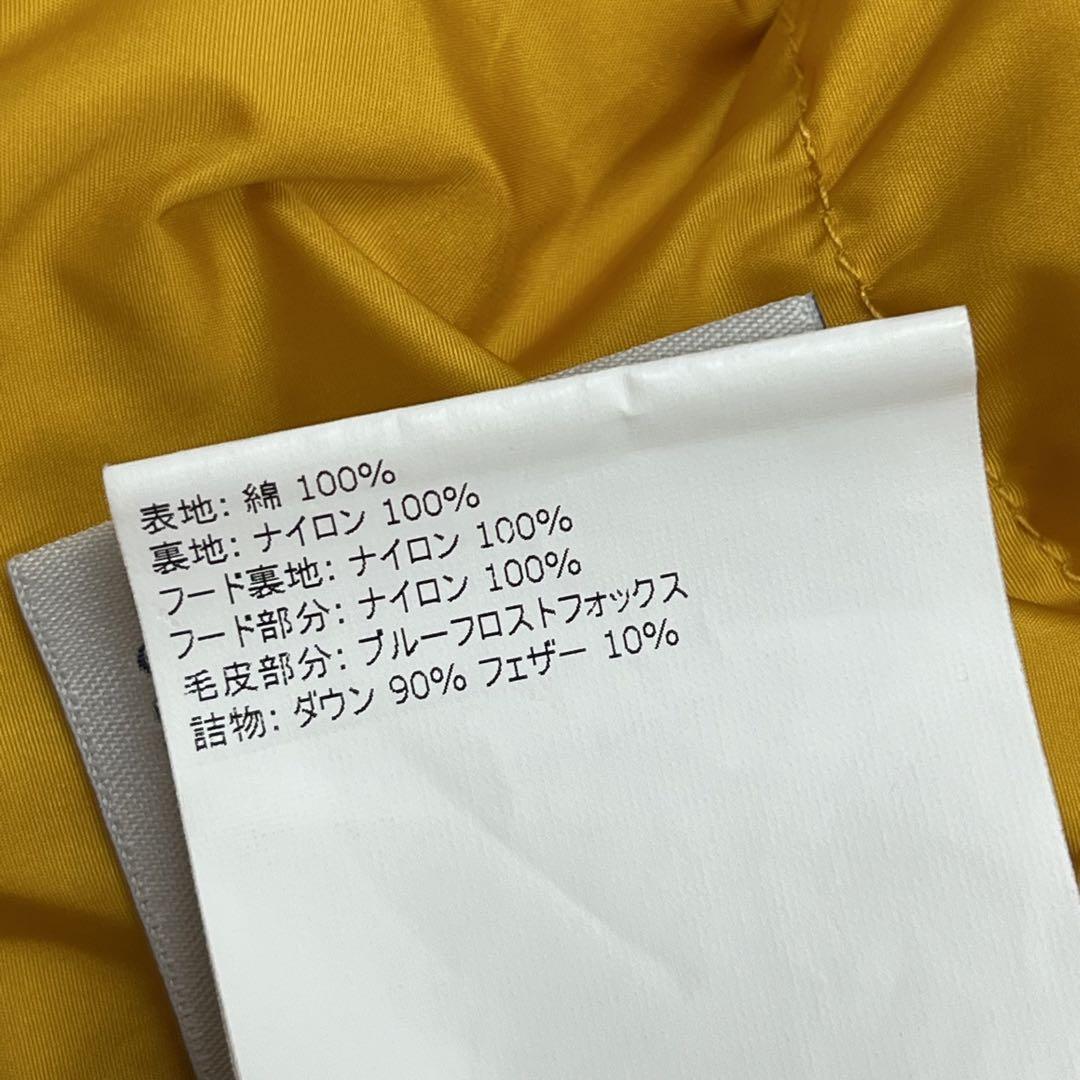 表地: 綿 100%
裏地: ナイロン 100%
フード裏地: ナイロン 100%
フード部分: ナイロン 100%
毛皮部分: ブルーフロストフォックス
詰物: ダウン 90% フェザー 10%